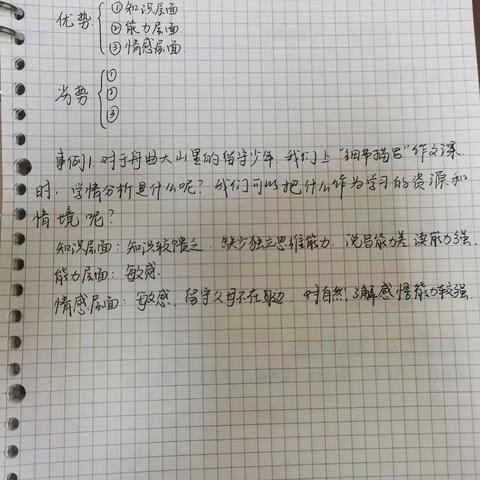 优势 ①知识层面
②能力层面
③情感层面
劣势 ①
②
③
事例1. 对于舟曲大山里的留守少年, 我们上"细节描写"作文课
时, 学情分析是什么呢? 我们可以把什么作为学习的资源和
情境呢?
知识层面: 知识较匮乏. 缺少独立思维能力. 说写能力差, 读能力强.
能力层面: 敏感.
情感层面: 敏感. 留守父母不在身边. 对自然, 了解感悟能力较强.